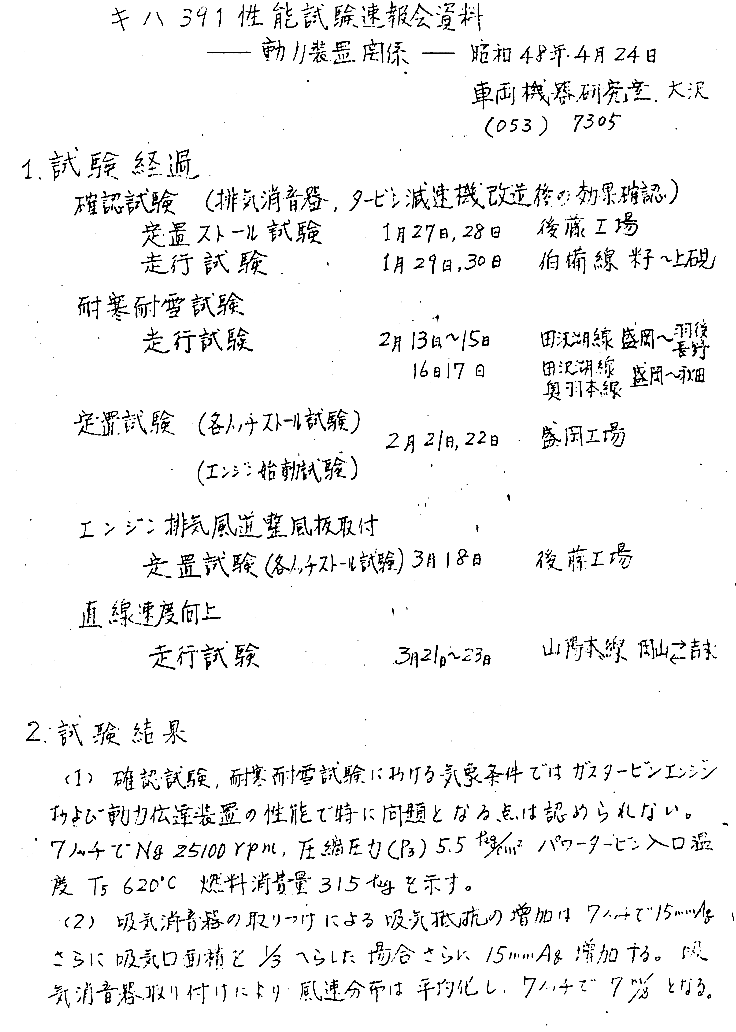 キハ391性能試験速報会資料
── 動力装置関係 ── 昭和48年4月24日
車両機器研究室 大沢
(053) 7305
1. 試験経過
確認試験 (排気消音器, タービン減速機改造後の効果確認)
定置ストール試験 1月27日,28日 後藤工場
走行試験 1月29日,30日 伯備線 米子〜上石見
耐寒耐雪試験
走行試験 2月13日〜15日 田沢湖線 盛岡〜羽後長野
16日17日 田沢湖線 奥羽本線 盛岡〜秋田
定置試験 (各ノッチストール試験)
2月21日,22日 盛岡工場
(エンジン始動試験)
エンジン排気風道整風板取付
定置試験(各ノッチストール試験) 3月18日 後藤工場
直線速度向上
走行試験 3月21日〜23日 山陽本線 岡山⇄吉永
2. 試験結果
(1) 確認試験, 耐寒耐雪試験における気象条件ではガスタービンエンジン
および動力伝達装置の性能で特に問題となる点は認められない。
7ノッチでNg 25100 rpm, 圧縮圧力(P3) 5.5 kg/cm² パワータービン入口温
度 T5 620°C 燃料消費量 315 kgを示す。
(2) 吸気消音器の取りつけによる吸気抵抗の増加は7ノッチで15mmAg
さらに吸気口面積を1/3へらした場合さらに15mmAg増加する。吸
気消音器取り付けにより風速分布は平均化し、7ノッチで7m/sとなる。